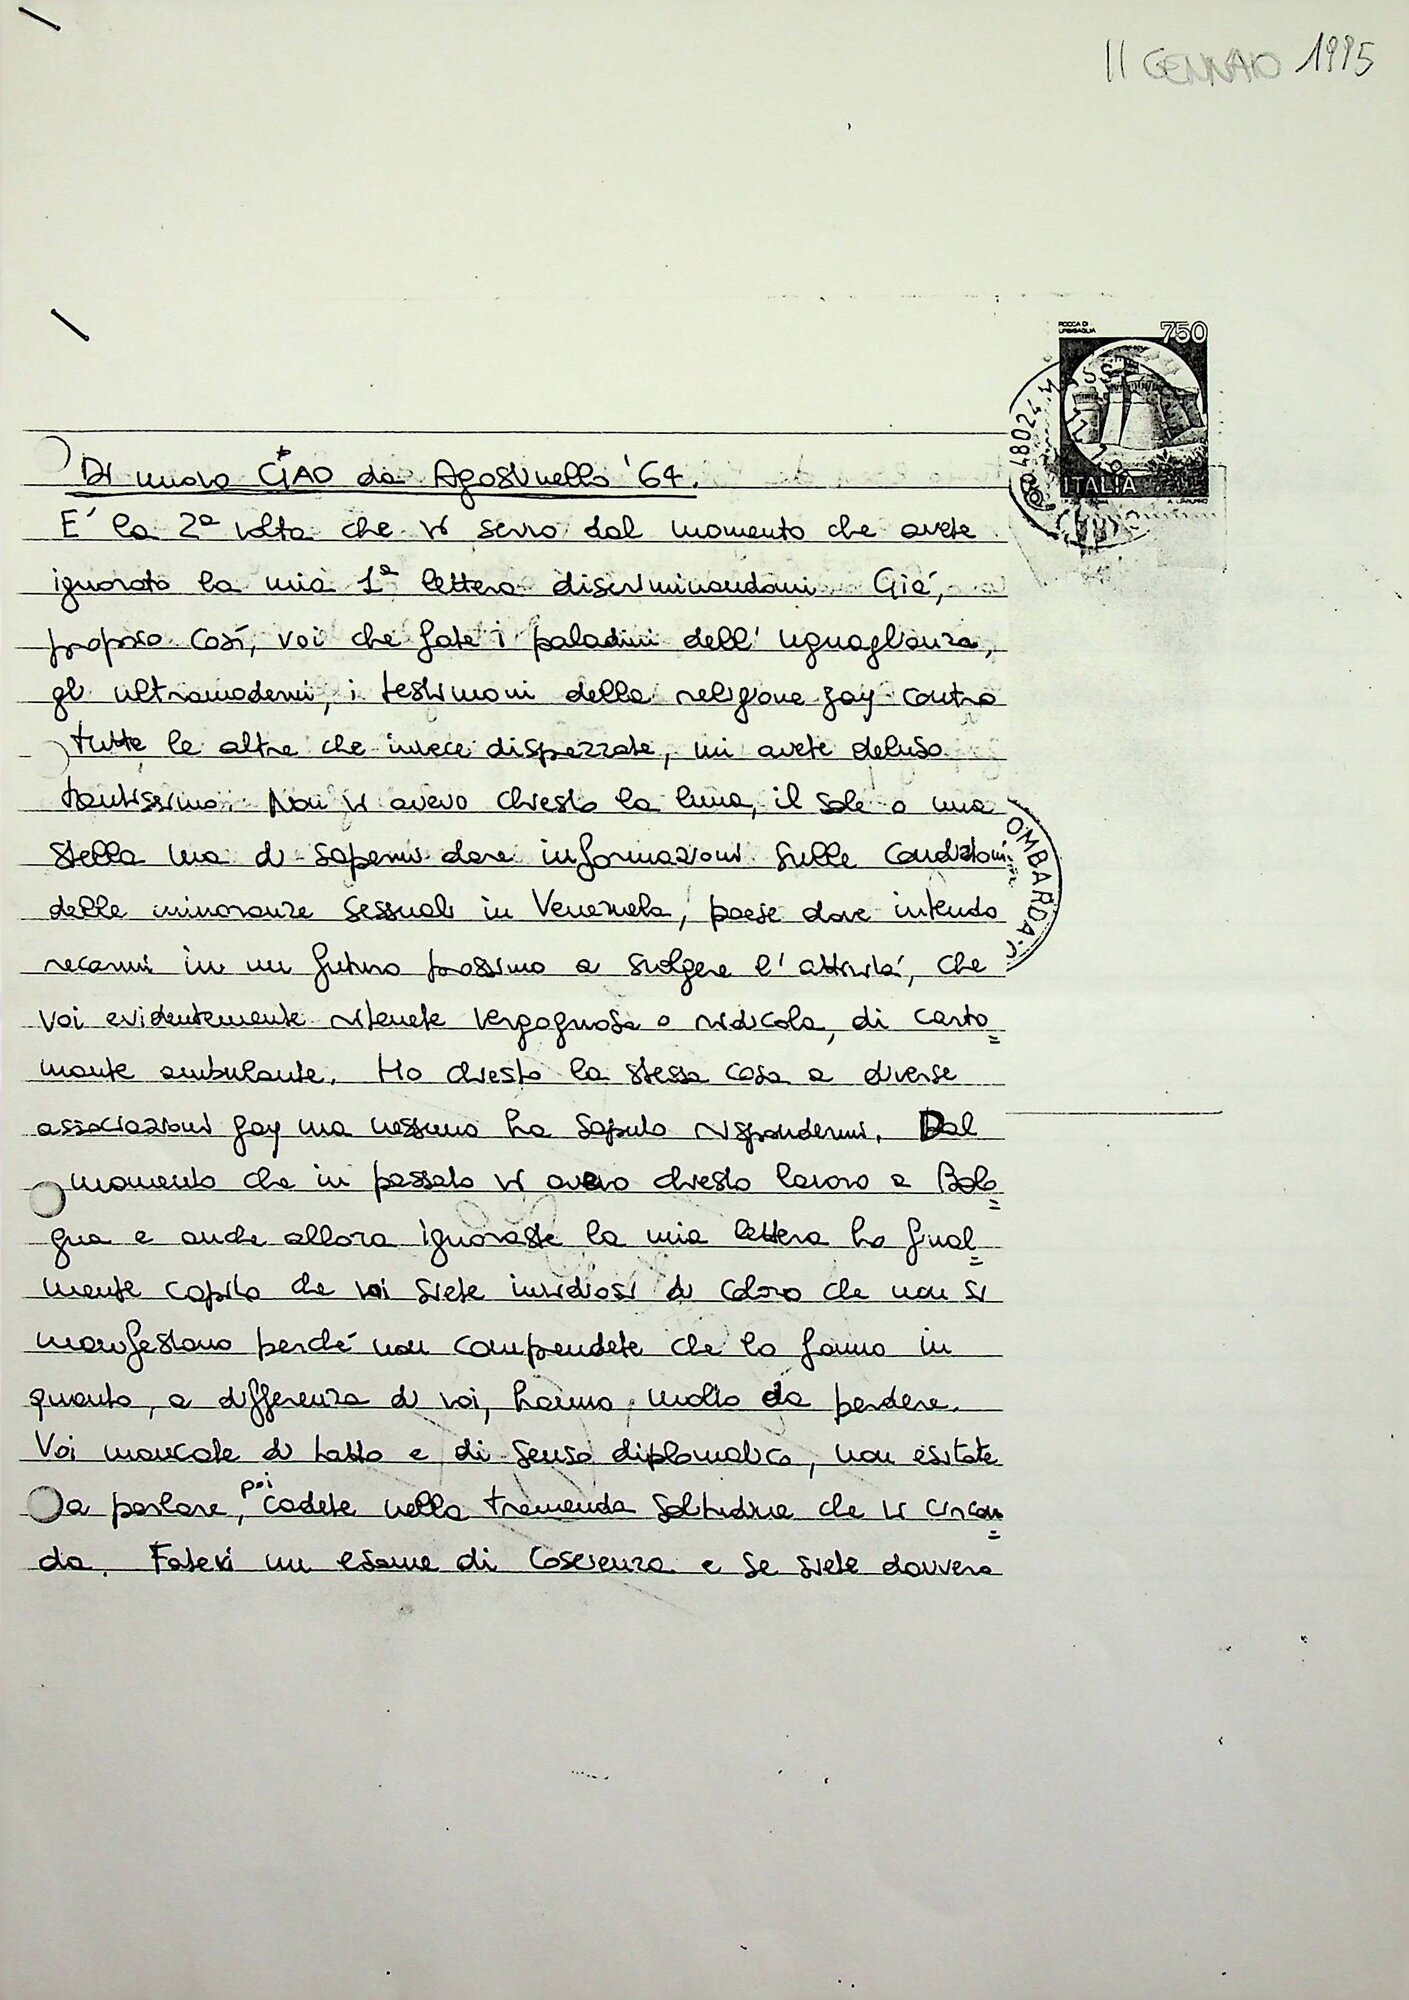 11 GENNAIO 1995
ROCCA DI
URBISAGLIA
750
48024 MASS
ITALIA
Di nuovo CIAO da Agostinello '64.
E' la 2ª volta che vi scrivo dal momento che avete
ignorato la mia 1ª lettera discriminandomi. Già,
proprio così, voi che fate i paladini dell'uguaglianza,
gli ultramoderni, i testimoni della religione gay contro
tutte le altre che invece disprezzate, mi avete deluso
tantissimo. Non vi avevo chiesto la luna, il sole o una
stella ma di sapermi dare informazioni sulle condizioni
delle minoranze sessuali in Venezuela, paese dove intendo
recarmi in un futuro prossimo a svolgere l'attività, che
voi evidentemente ritenete vergognosa o ridicola, di carto=
mante ambulante. Ho chiesto la stessa cosa a diverse
associazioni gay ma nessuno ha saputo rispondermi. Dal
momento che in passato vi avevo chiesto lavoro a Bolo=
gna e anche allora ignoraste la mia lettera ho final=
mente capito che voi siete invidiosi di coloro che non si
manifestano perché non comprendete che lo fanno in
quanto, a differenza di voi, hanno molto da perdere.
Voi mancate di tatto e di senso diplomatico, non esitate
a parlare, poi cadete nella tremenda solitudine che vi circon=
da. Fatevi un esame di coscienza e se siete davvero
OMBARDA